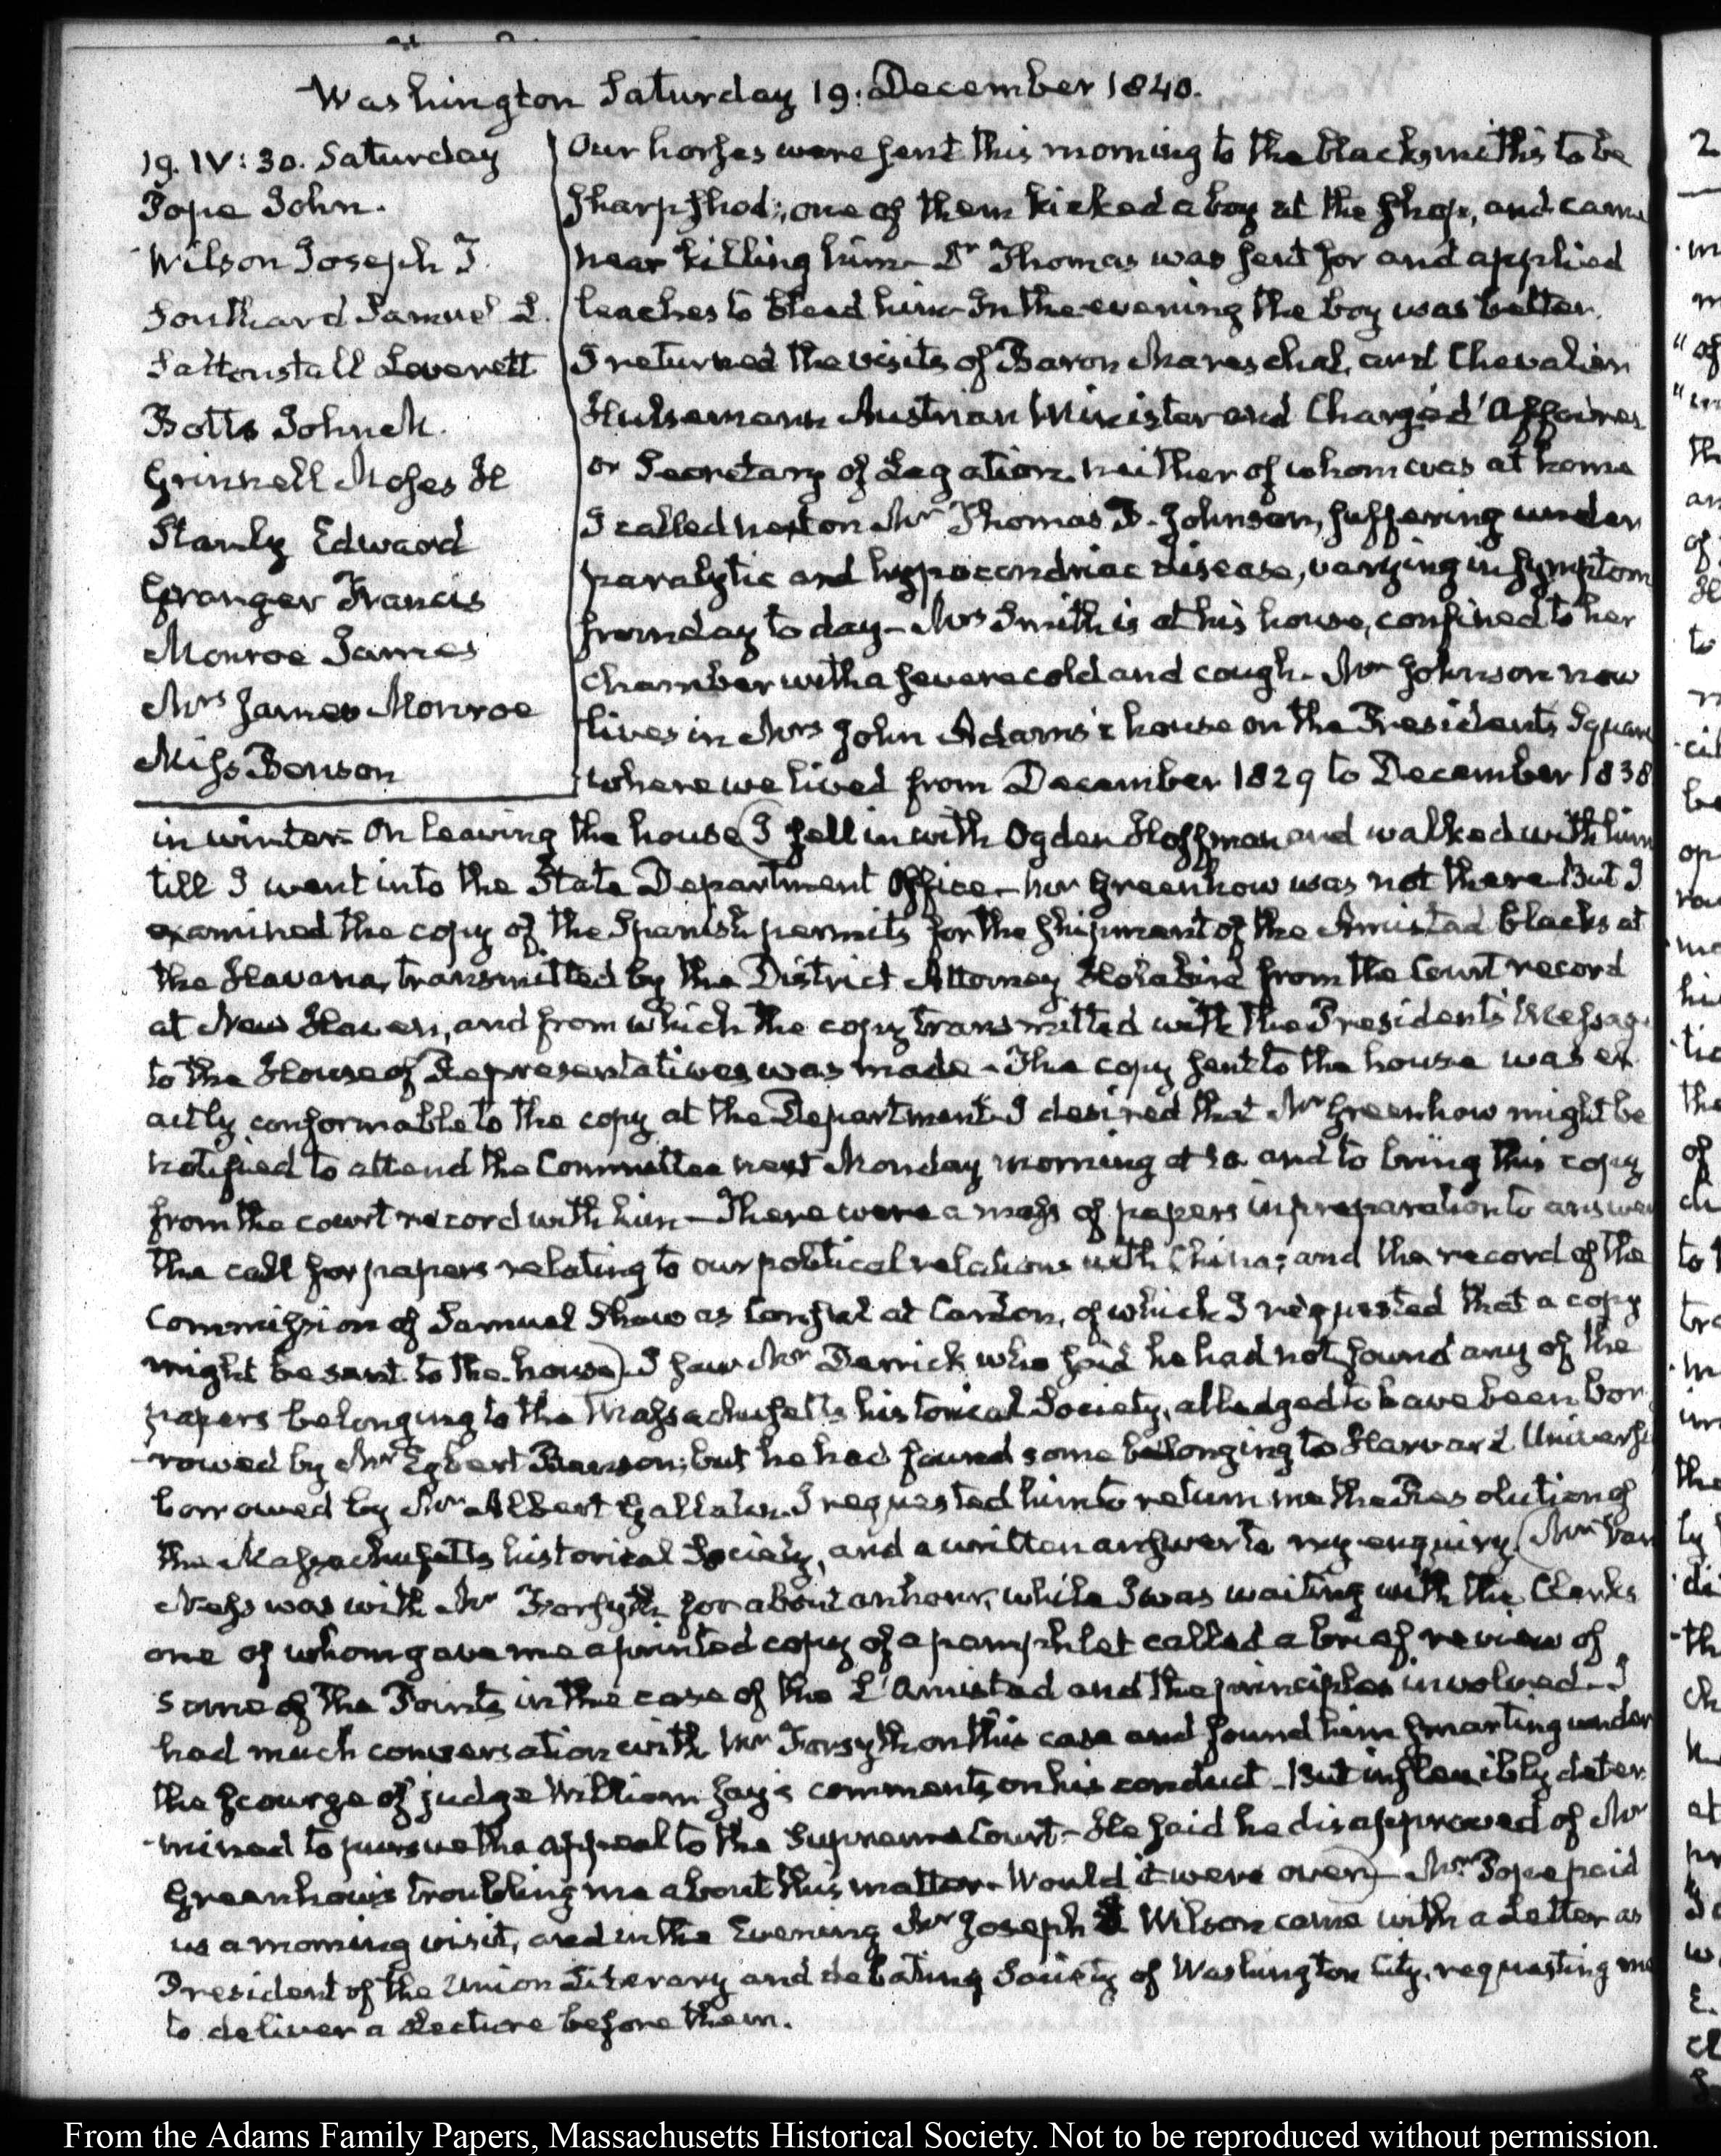 Washington Saturday 19. December 1840.
19. IV: 30. Saturday
Pope John.
Wilson Joseph T.
Southard Samuel L.
Saltonstall Leverett
Botts John M.
Grinnell Moses H
Stanly Edward
Granger Francis
Monroe James
Mrs James Monroe
Miss Benson
Our horses were sent this morning to the blacksmiths to be
sharp shod; one of them kicked a boy at the shop, and came
near killing him— Dr Thomas was sent for and applied
leaches to bleed him— In the evening the boy was better.
I returned the visits of Baron Mareschal, and Chevalier
Hulsemann Austrian Minister and Chargé d'Affaires
or Secretary of Legation. neither of whom was at home
I called next on Mr Thomas B. Johnson, suffering under
paralytic and hypocondriac disease, varying in symptom
from day to day— Mrs Smith is at his house, confined to her
chamber with a severe cold and cough. Mr Johnson now
lives in Mrs John Adams's house on the President's Square
where we lived from December 1829 to December 1838
in winter— On leaving the house (I fell in with Ogden Hoffman and walked with him
till I went into the State Department Office— Mr Greenhow was not there. But I
examined the copy of the Spanish permits for the shipment of the Amistad blacks at
the Havana, transmitted by the District Attorney Holabird from the Court record
at New Haven, and from which the copy transmitted with the President's Message
to the House of Representatives was made— The copy sent to the house was ex
actly conformable to the copy at the Department— I desired that Mr Greenhow might be
notified to attend the Committee next Monday morning at 10. and to bring this copy
from the court record with him— There were a mass of papers in preparation to answer
the call for papers relating to our political relations with China; and the record of the
Commission of Samuel Shaw as Consul at Canton, of which I requested that a copy
might be sent to the house). I saw Mr Derrick who said he had not found any of the
papers belonging to the Massachusetts historical Society, alledged to have been bor
rowed by Mr Egbert Benson; but he had found some belonging to Harvard University
borrowed by Mr Albert Gallatin. I requested him to return me the Resolution of
the Massachusetts historical Society, and a written answer to my enquiry. (Mr Van
Ness was with Mr Forsyth for about an hour, while I was waiting with the Clerks
one of whom gave me a printed copy of a pamphlet called a brief review of
some of the Points in the case of the L'Amistad and the principles involved— I
had much conversation with Mr Forsyth on this case and found him smarting under
the scourge of judge William Jay's comments on his conduct— But inflexibly deter
mined to pursue the appeal to the Supreme Court— He said he disapproved of Mr
Greenhow's troubling me about this matter— Would it were over)— Mr Pope paid
us a morning visit, and in the Evening Mr Joseph T Wilson came with a Letter as
President of the Union Literary and debating Society of Washington City, requesting me
to deliver a Lecture before them.
From the Adams Family Papers, Massachusetts Historical Society. Not to be reproduced without permission.